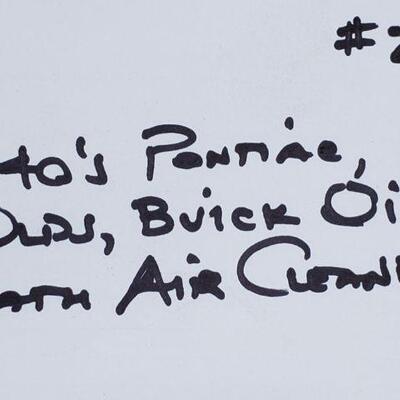 #2
40's Pontiac,
Olds, Buick Oi
ath Air Cleane